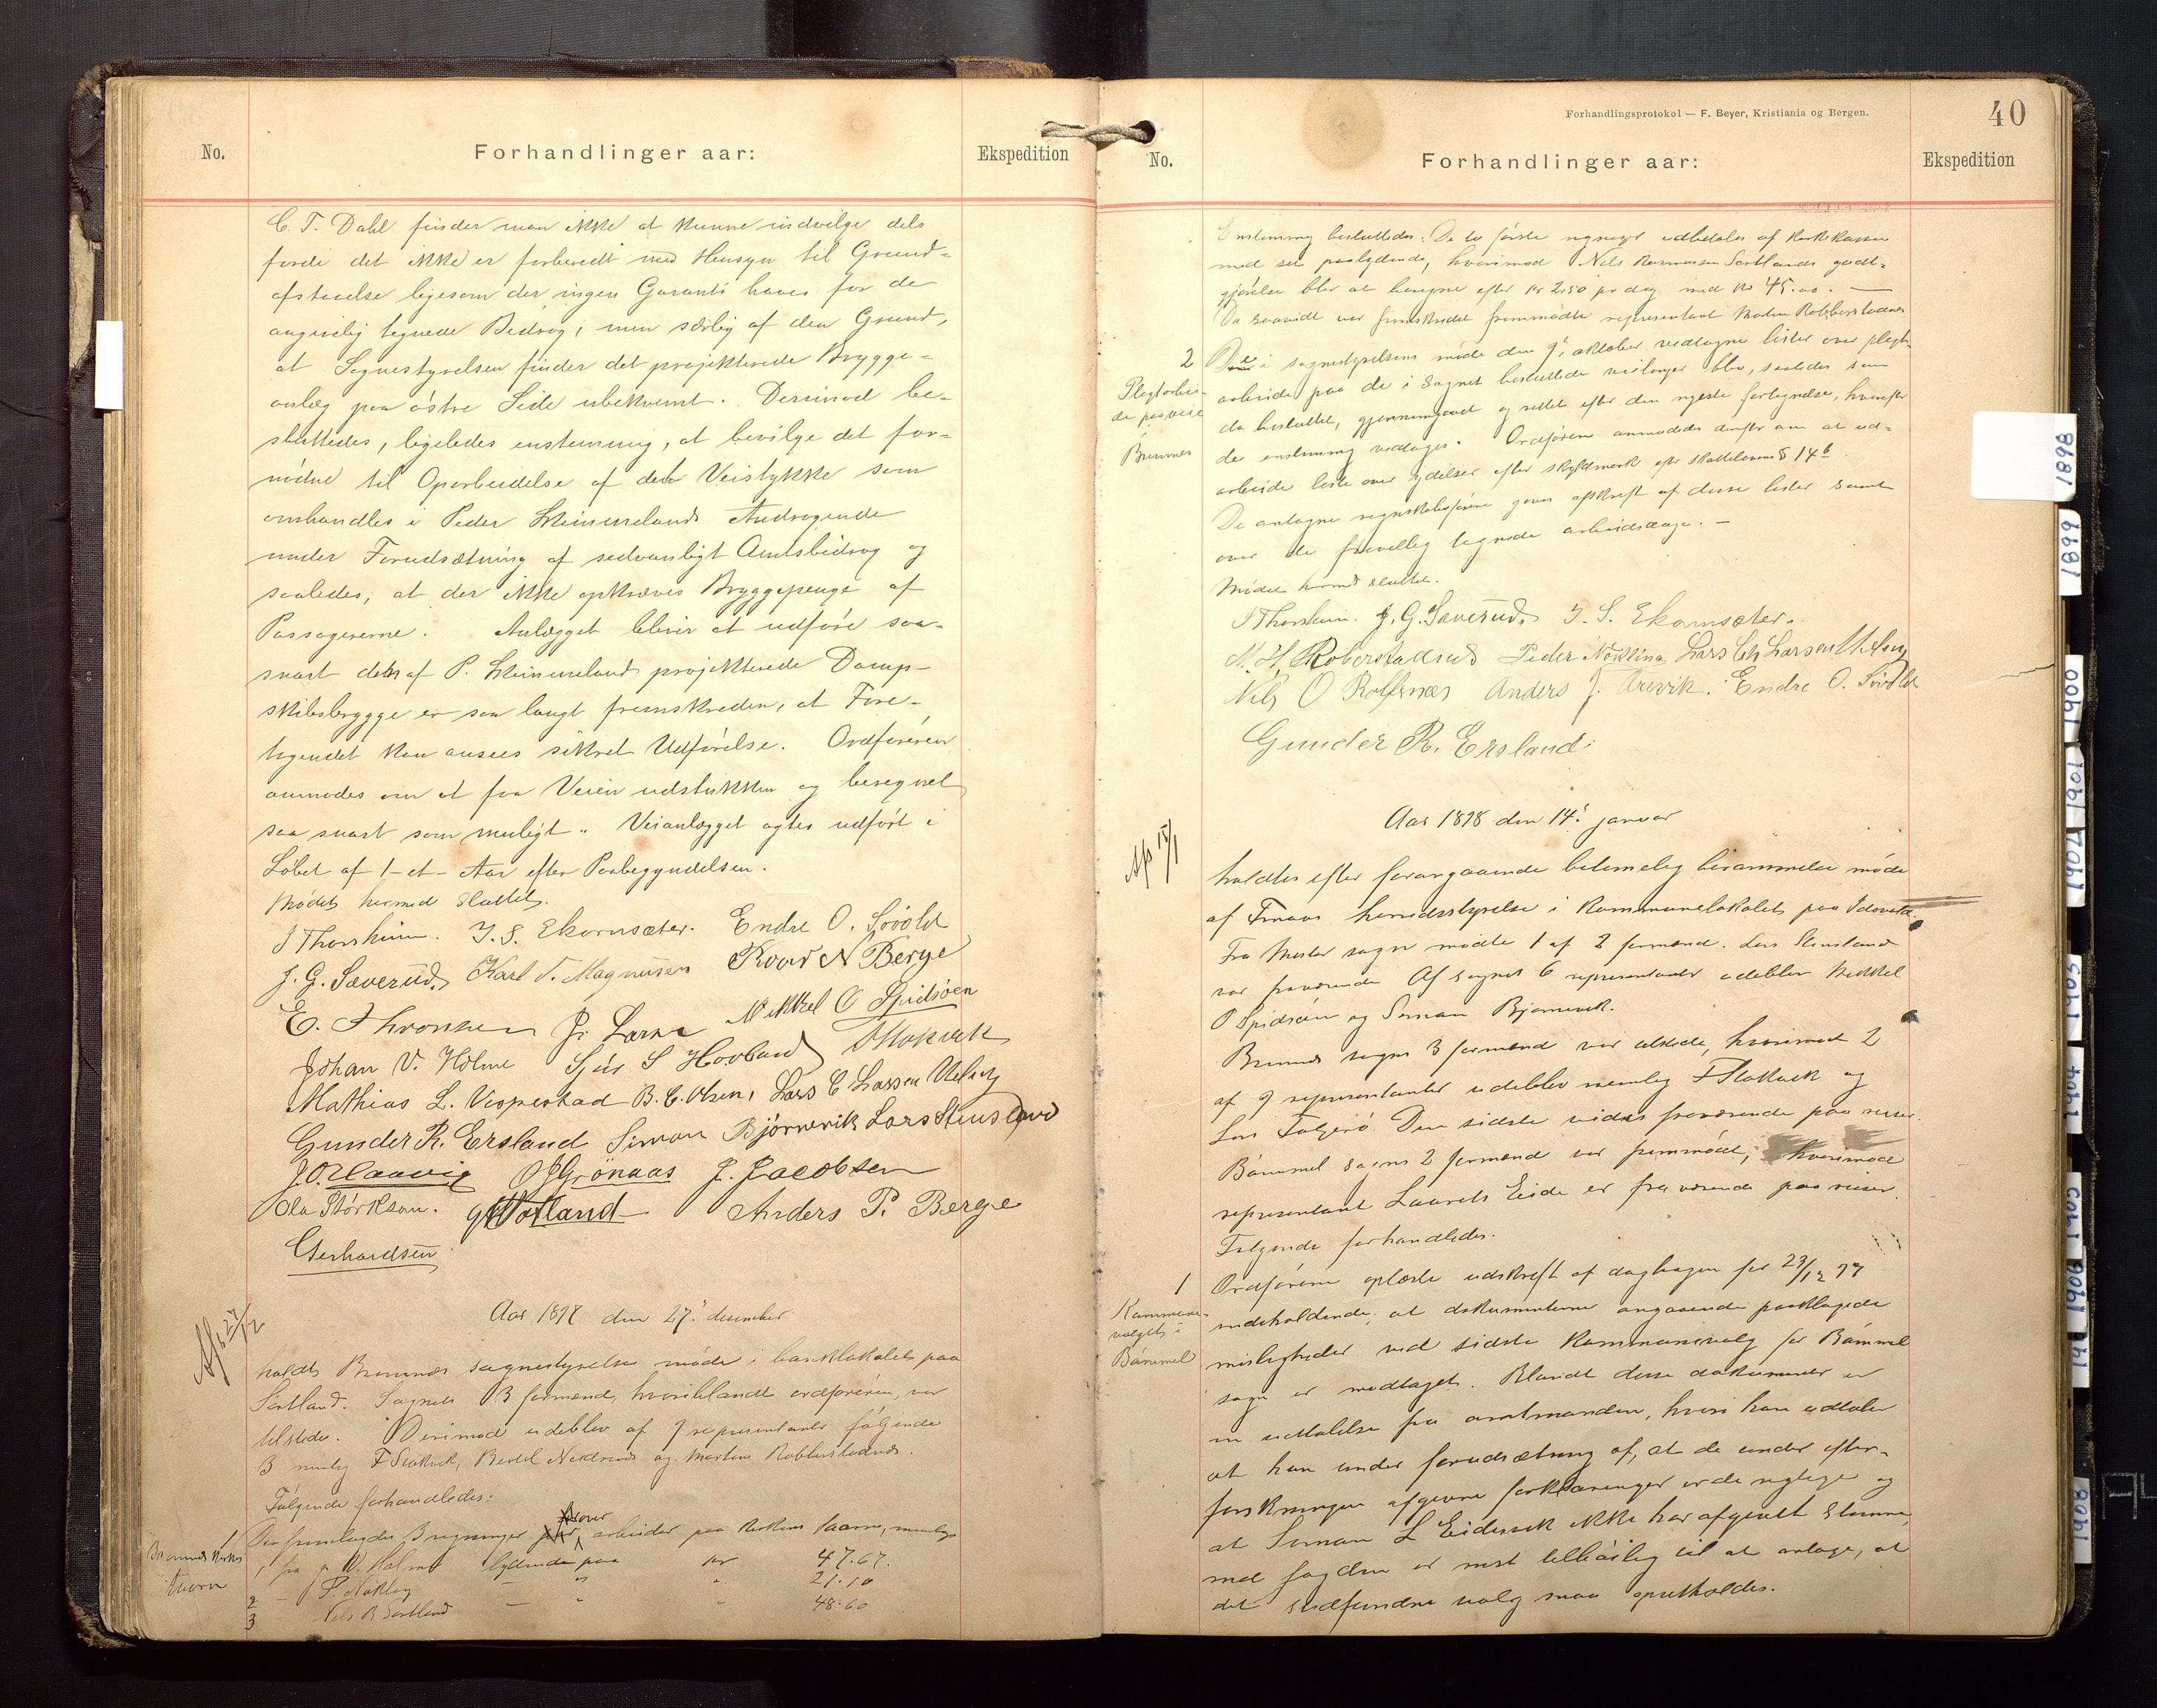 No.
Forhandlinger aar:
Ekspedition
C. T. Dahl finder man ikke at kunne indvilge dels
fordi det ikke er forberedt med Hensyn til Grund-
afstaaelse ligesom der ingen Garanti haves for de
angivelig tegnede Bidrag, men særlig af den Grund,
at Sognestyrelsen finder det projekterede Brygge-
anlæg paa østre Side ubekvemt. Derimod be-
sluttedes, ligeledes enstemmig, at bevilge det for-
nødne til Oparbeidelse af det Veistykke som
omhandles i Peder Steinnelands Andragende
under Forudsætning af sedvanligt Amtsbidrag og
saaledes, at der ikke opkræves Bryggepenge af
Passagererne. Anlægget bliver at udføre saa-
snart den af P. Steinneland projekterede Damp-
skibsbrygge er saa langt fremskreden, at Fore-
tagendet kan ansees sikret Udførelse. Ordføreren
anmodes om at faa Veien udstukken og beregnet
saa snart som muligt. Veianlægget agtes udført i
Løbet af 1-et- Aar efter Paabegyndelsen.
Mødet hermed sluttet.
J Thorsheim. J. S. Ekornsæter. Endre O. Søvold
J. G. Sæverud. Karl T. Magnusen Roar N Berge
E. Thronsen P. Larne Mikkel O Spidsøen
Johan V. Holme Sjur S Hovland F Stokvik
Mathias L. Vespestad B. C. Olsen, Lars C Larssen Uelsey
Gunder R. Ersland Simon Bjørnevik Lars Stensland
J. O. Haavig O J Grönaas J. Jacobsen
Ola Størkson. Vatland Anders P. Berge
Gerhardsen
Afs 27/12
Aar 1897 den 27' desember
holdt Bremnes sognestyrelse møde i banklokalet paa
Sortland. Sognets 3 formænd, hvoriblandt ordføreren, var
tilstede. Derimod udeblev af 9 representanter følgende
3 nemlig F Stokvik, Bertel Nekkrend og Morten Robberstadnes.
Følgende forhandledes:
1
Bremnes kirkes
taarn
Der fremlagdes 3 regninger over arbeider paa kirkens taarn, nemlig
1 fra J. V. Holme lydende paa kr 47.67.
2 - P Nøkling - " " 21.10
3 Nels R Sortland - " " 48.60
Forhandlingsprotokol — F. Beyer, Kristiania og Bergen.
40
No.
Forhandlinger aar:
Ekspedition
Enstemmig besluttedes: De to første regninger udbetales af kirkekassen
med sit paalydende, hvorimod Nels Rasmussen Sortlands godt-
gjørelse blev at beregne efter kr 2.50 pr dag med kr 45.00. —
Da saavidt var fremskredet fremmødte representant Morten Robberstadnes
2
Pligtarbei-
de paa veie
Bremnes
De i sognestyrelsens møde den 9' oktober vedtagne lister over pligt-
arbeide paa de i sognet besluttede veilinger blev, saaledes som
da besluttet, gjennemgaaet og rettet efter den nyeste fortegnelse, hvorefter
de enstemmig vedtoges. Ordføreren anmodedes derefter om at ud-
arbeide liste over ydelser efter skyldmark efter skatteloven § 14 b
De antagne regnskabsførere gives afskrift af disse lister samt
over de frivillig tegnede arbeidsdage. —
Mødet hermed sluttet.
J Thorsheim. J. G. Sæverud. J. S. Ekornsæter.
M. H. Roberstadnes Peder Nøkling Lars Ch Larsen Uelsey
Nils O Rolfsnes Anders J. Arevik. Endre O. Søvold
Gunder R. Ersland:
Afs 15/1
Aar 1898 den 14' januar
holdtes efter forangaaende betimelig berammelse møde
af Finaas herredsstyrelse i kommunelokalet paa Idevold.
Fra Moster sogn mødte 1 af 2 formænd. Lars Stensland
var fraværende. Af sognets 6 representanter udeblev Mikkel
O Spidsøen og Simon Bjørnevik.
Bremnes sogns 3 formænd var tilstede, hvorimod 2
af 9 representanter udeblev nemlig F Stokvik og
Lars Folgerø. Den sidste vides fraværende paa reiser.
Bømmel sogns 2 formænd var fremmødt, hvorimod
representant Laurits Eide er fraværende paa reiser.
Følgende forhandledes.
1
Kommune-
valget i
Bømmel
Ordføreren oplæste udskrift af dagbogen for 23/12 97
indeholdende, at dokumenterne angaaende paaklagede
misligheder ved sidste kommunevalg for Bømmel
sogn er modtaget. Blandt disse dokumenter er
en udtalelse fra amtmanden, hvori han udtaler
at han under forudsætning af, at de under efter-
forskningen afgivne forklaringer er de rigtige og
at Simon L Eidesvik ikke har afgivet stemme,
med fogden er mest tilbøielig til at antage, at
det stedfundne valg maa opretholdes.
1898
1899
1900
1901
1902
1903
1904
1905
1906
1908